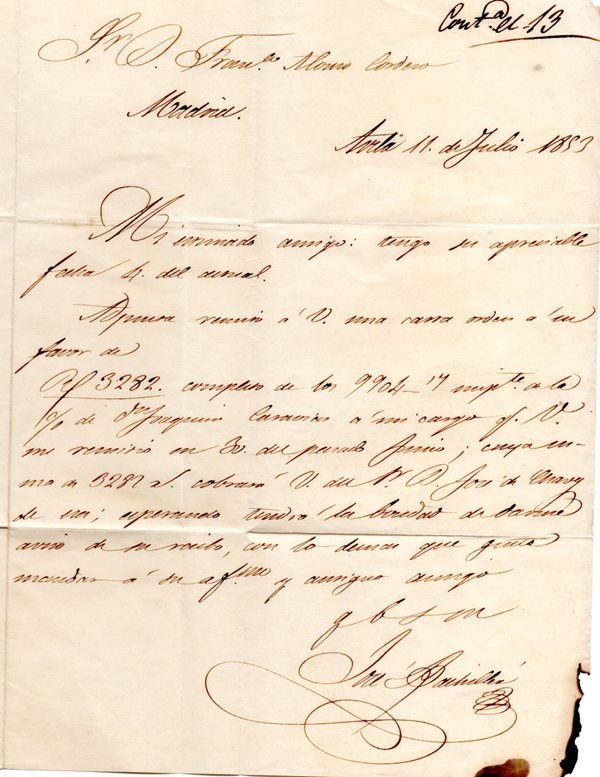 Cont.ª el 13
Sr. D. Fran.co Alonso Cordero
Madrid.
11. de Julio 1853
Mi estimado amigo: tengo su apreciable
fecha 4. del actual.
Adjunta remito á V. una carta orden á su
favor de
Rs 3282. completo de los 9904-17 importe a la
de Dn Joaquin á mi cargo q. V.
me remitió en 30. del pasado Junio; cuya su-
ma de 3282 rs. cobrará V. del Sr. D. José de
de esa; esperando tendrá la bondad de darme
aviso de su recibo, con lo demas que guste
mandar á su afmo y antiguo amigo
q b s m
José